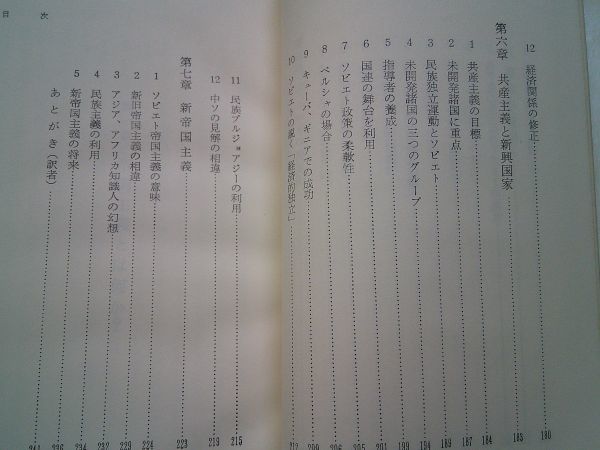 12 経済関係の修正 180
第六章 共産主義と新興国家 183
1 共産主義の目標 184
2 未開発諸国に重点 187
3 民族独立運動とソビエト 189
4 未開発諸国の三つのグループ 194
5 指導者の養成 199
6 国連の舞台を利用 201
7 ソビエト政策の柔軟性 205
8 ペルシャの場合 206
9 キューバ、ギニアでの成功 209
10 ソビエトの説く「経済的独立」 212
11 民族ブルジョアジーの利用 215
12 中ソの見解の相違 219
第七章 新帝国主義 223
1 ソビエト帝国主義の意味 224
2 新旧帝国主義の相違 229
3 アジア、アフリカ知識人の幻想 232
4 民族主義の利用 234
5 新帝国主義の将来 236
あとがき(訳者) 241
目次